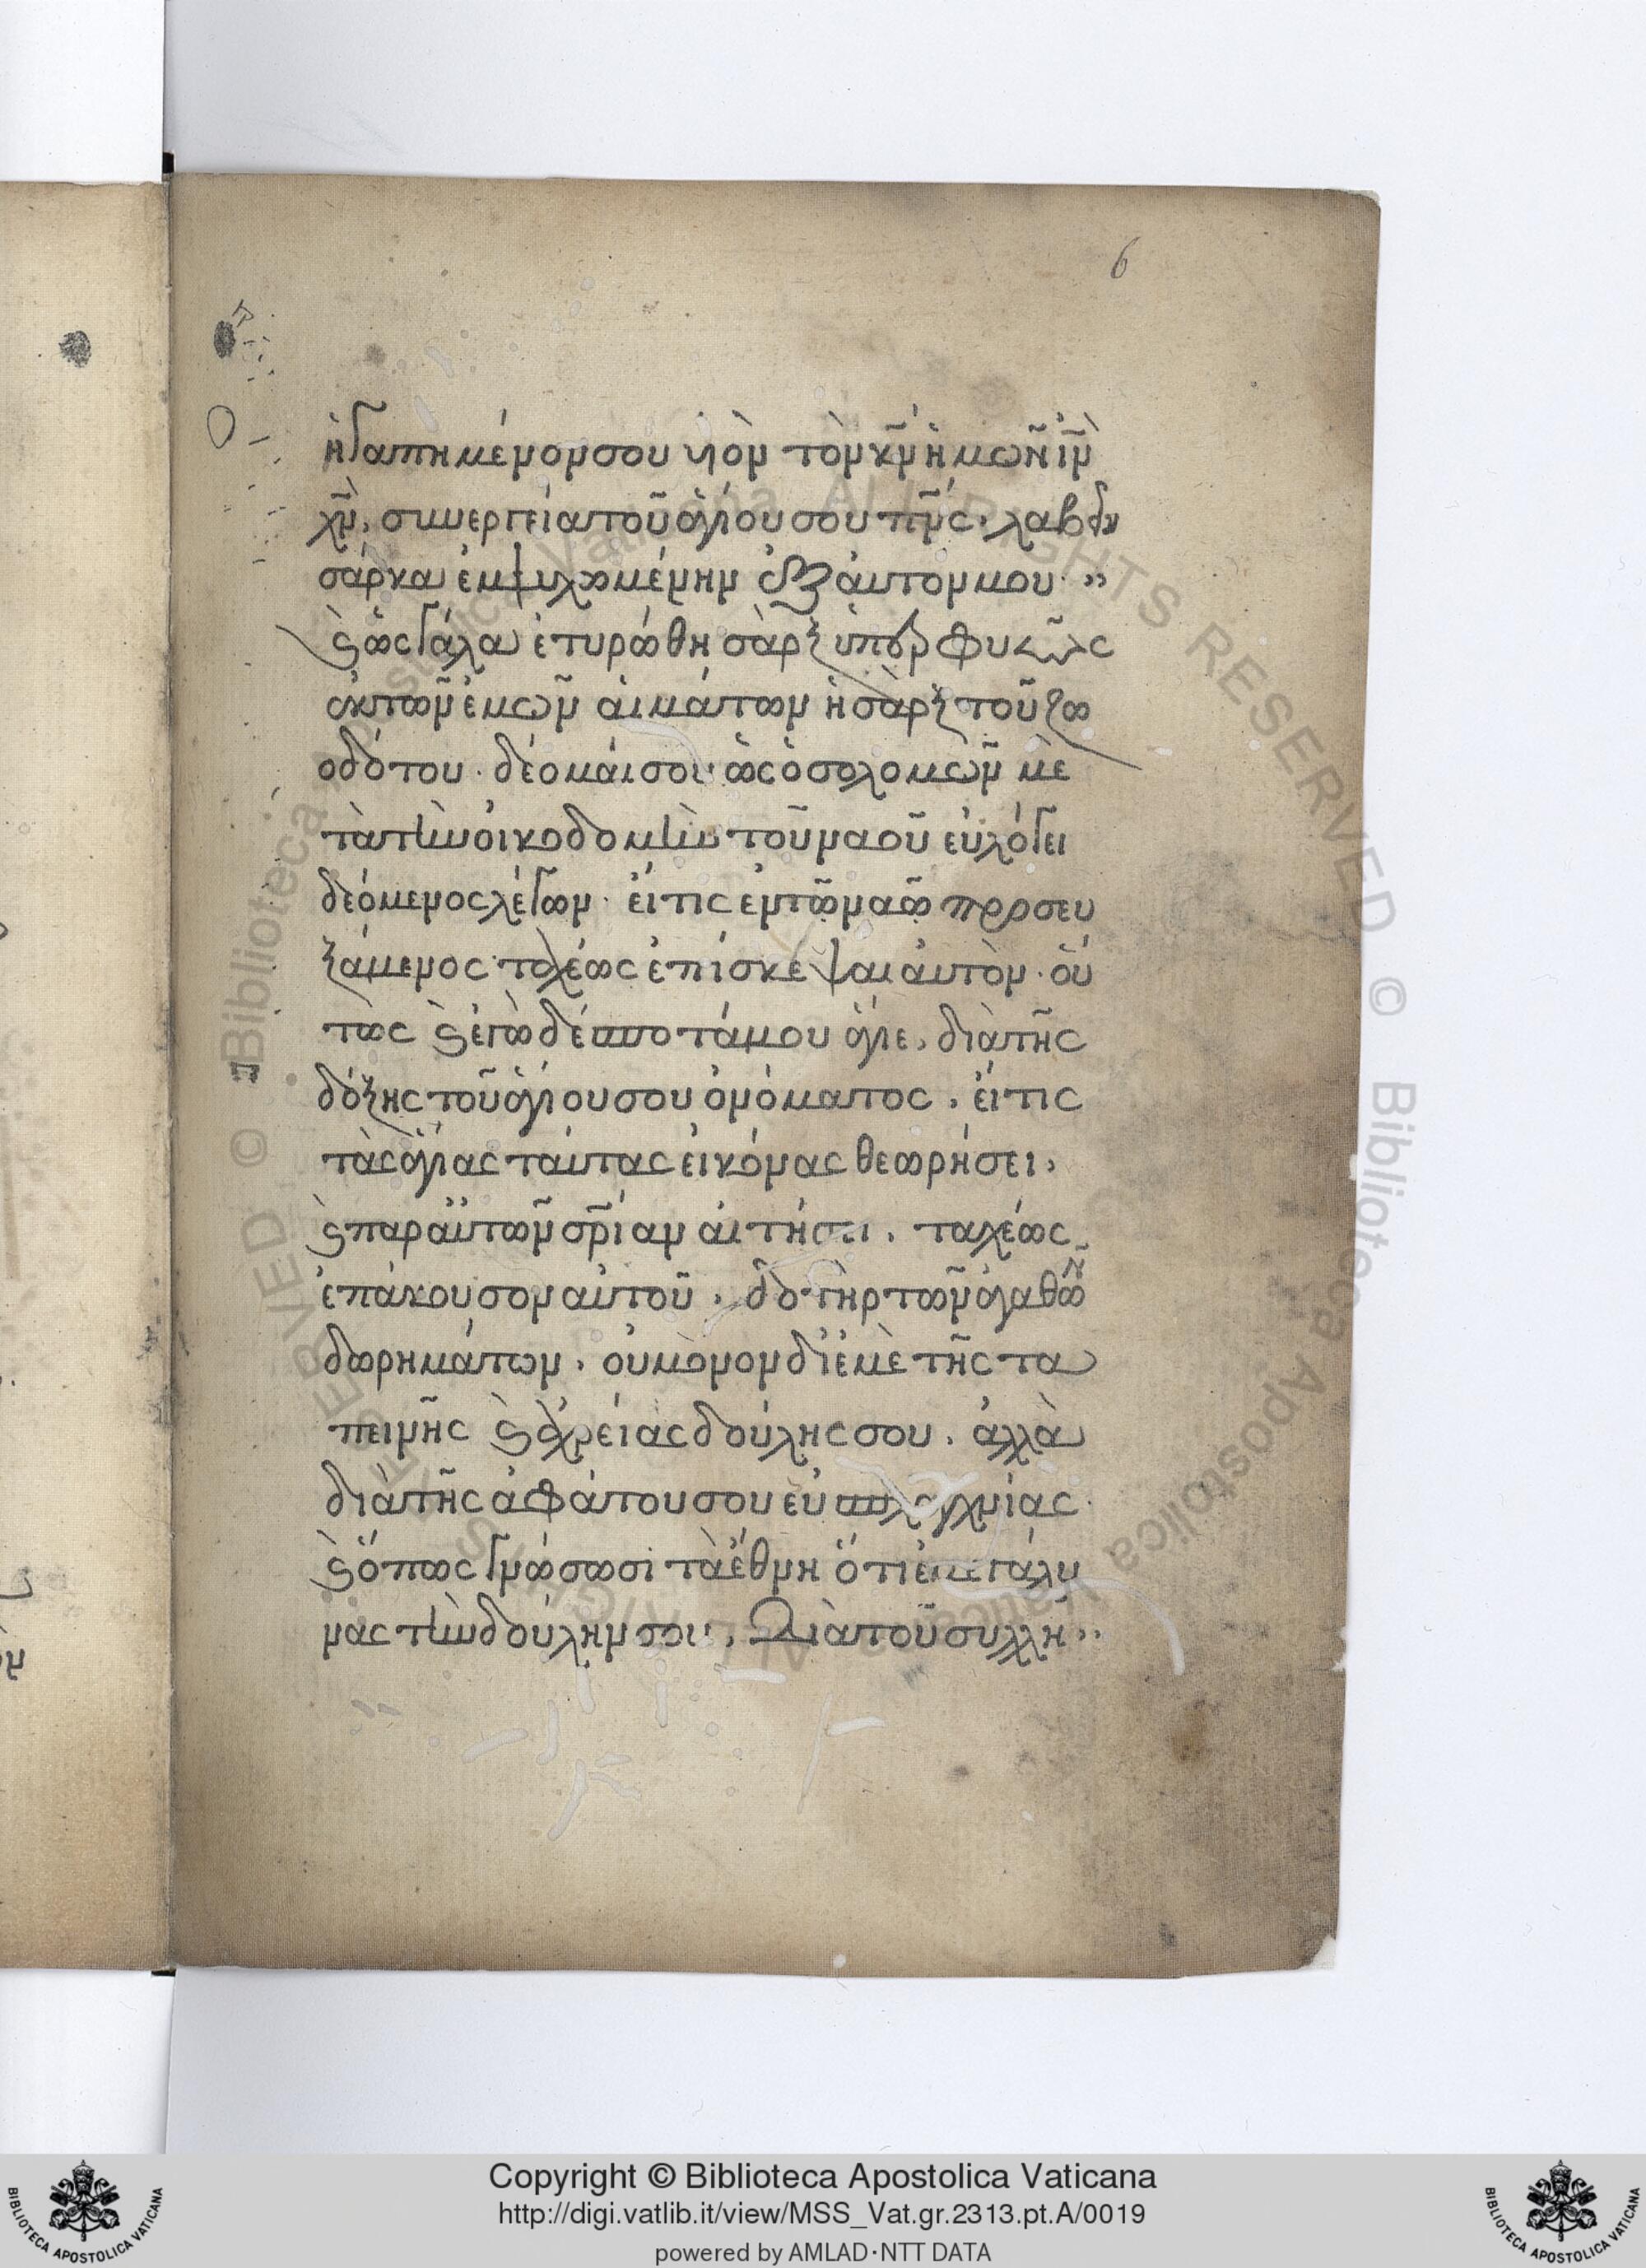 6
ἠγαπημένον σου υἱὸν τὸν κ̅ν̅ ἡμῶν ι̅ν̅
χ̅ν̅, συνεργεία τοῦ ἁγίου σου π̅ν̅ς, λαβὼν
σάρκα ἐμψυχωμένην ἐξ αὐτόν μου ·,,
ϛ ὡς γάλα ἐτυρώθη σὰρξ ὑπὲρ φυσ
ἐκ τῶν ἐμῶν αἱμάτων ἡ σὰρξ τοῦ ζω
οδότου · δέομαί σοι ὡς ὁ σολομῶν με
τὰ τὴν οἰκοδομὴν τοῦ ναοῦ εὐλόγει
δεόμενος λέγων · εἴ τις ἐν τῶ ναῶ προσευ
ξάμενος ταχέως ἐπίσκεψαι αὐτὸν · οὕ
τως ϛ ἐγὼ δέσποτά μου ἅγιε, διὰ τῆς
δόξης τοῦ ἁγίου σου ὀνόματος, εἴ τις
τὰς ἁγίας ταύτας εἰκόνας θεωρήσει,
ϛ παρ αὐτῶν σ̅ρ̅ίαν αἰτήσει, ταχέως
ἐπάκουσον αὐτοῦ, δοτὴρ τῶν ἀγαθῶν
δωρημάτων, οὐ μόνον δι ἐμὲ τῆς τα
πεινῆς ϛ ἀχρείας δούλης σου, ἀλλὰ
διὰ τῆς ἀφάτου σου εὐσπλαγχνίας ·
ϛ ὅπως γνώσωσι τὰ ἔθνη ὅτι ἐμεγάλυ
νας τὴν δούλην σου, Διὰ τοῦ συλλη ··
© Biblioteca Apostolica Vaticana ALL RIGHTS RESERVED © Biblioteca Apostolica Vaticana ALL RIGHTS RESERVED
Copyright © Biblioteca Apostolica Vaticana
http://digi.vatlib.it/view/MSS_Vat.gr.2313.pt.A/0019
powered by AMLAD·NTT DATA
BIBLIOTECA APOSTOLICA VATICANA
BIBLIOTECA APOSTOLICA VATICANA